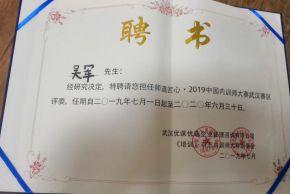 聘书
吴军 先生:
经研究决定,特聘请您担任师道匠心·2019中国内训师大赛武汉赛区
评委,任期自二〇一九年七月一日起至二〇二〇年六月三十日。
武汉优课优
《培训
二〇一九年七月